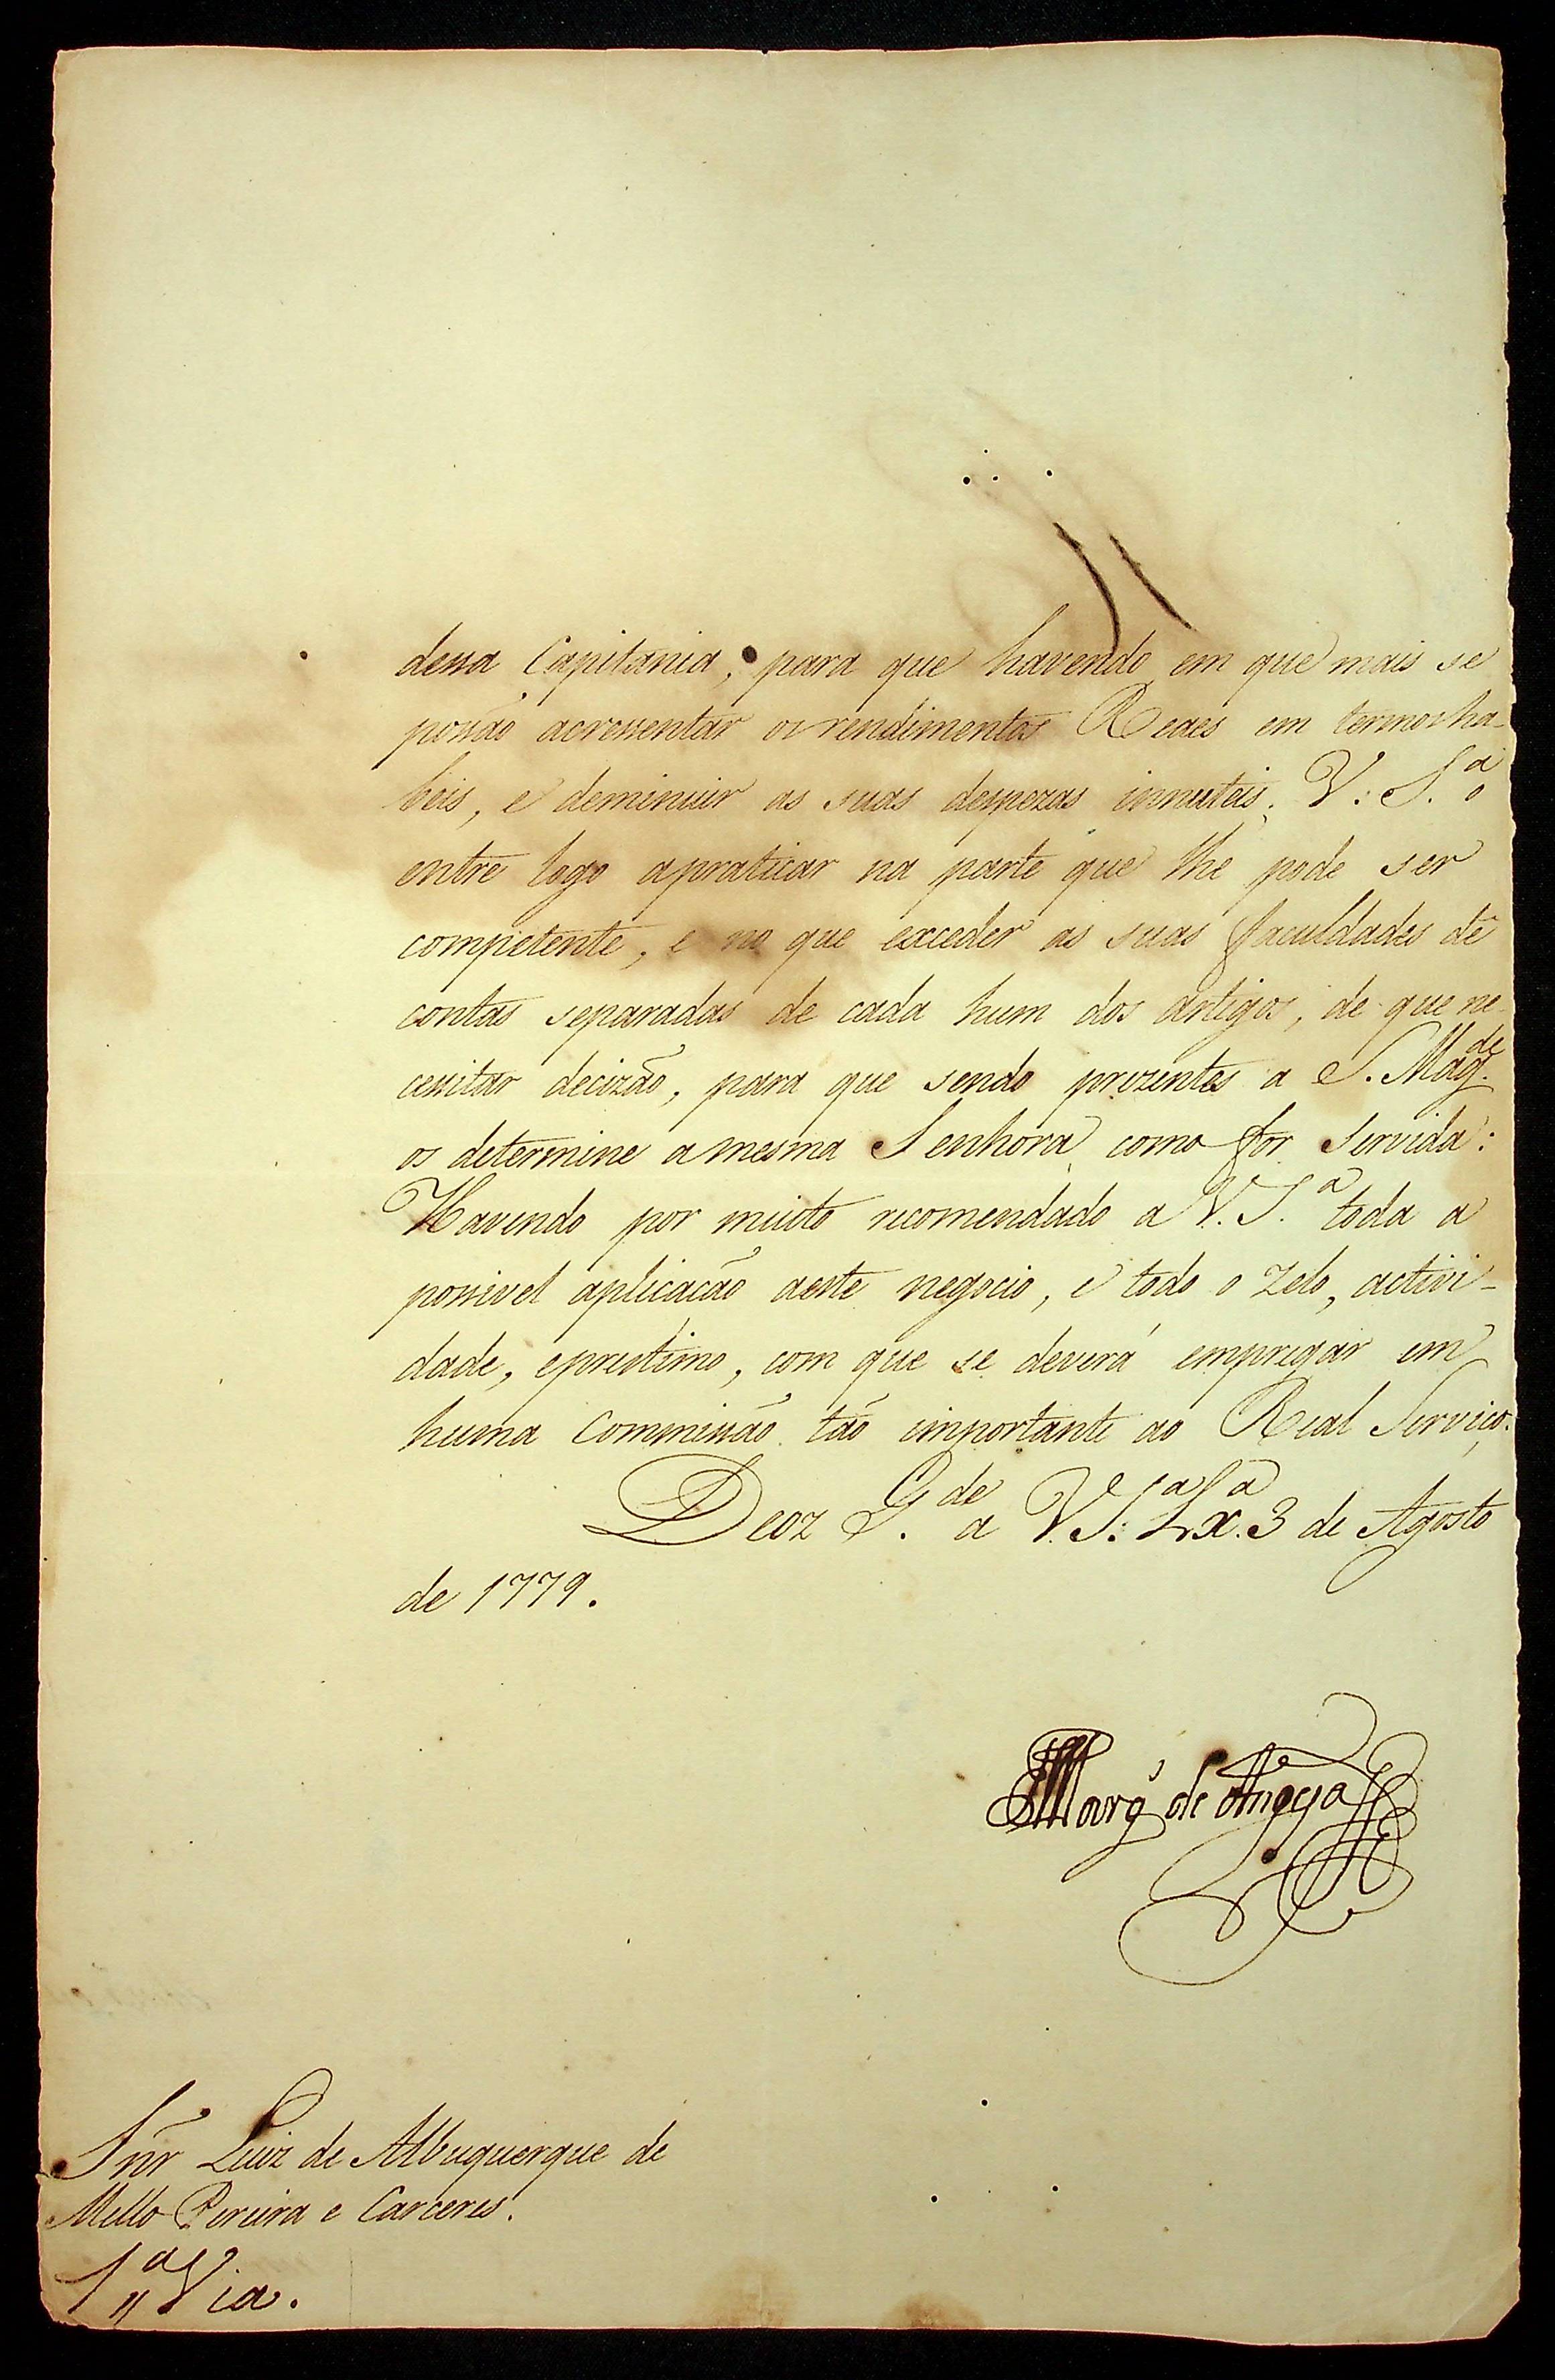 dessa Capitania, para que havendo em que mais se
possão acressentar os rendimentos Reaes em termos ha-
beis, e deminuir as suas despezas innuteis, V: S.ª
entre logo apraticar na parte que lhe pode ser
competente, e no que exceder as suas faculdades dê
contas separadas de cada hum dos artigos, de que ne-
cessitar decizão, para que sendo prezentes a S. Mag.de
os determine a mesma Senhora como for servida:
Havendo por muito recomendado a V. S.ª toda a
possivel aplicação aeste negocio, e todo o Zelo, activi-
dade, eprestimo, com que se deverá empregar em
huma Commissão tão importante ao Real Serviço.
Deoz G.de a V. S.ª Lx.ª 3 de Agosto
de 1779.
Marq.s de Angeja
Snr Luiz de Albuquerque de
Mello Pereira e Carceres.
1.ª Via.